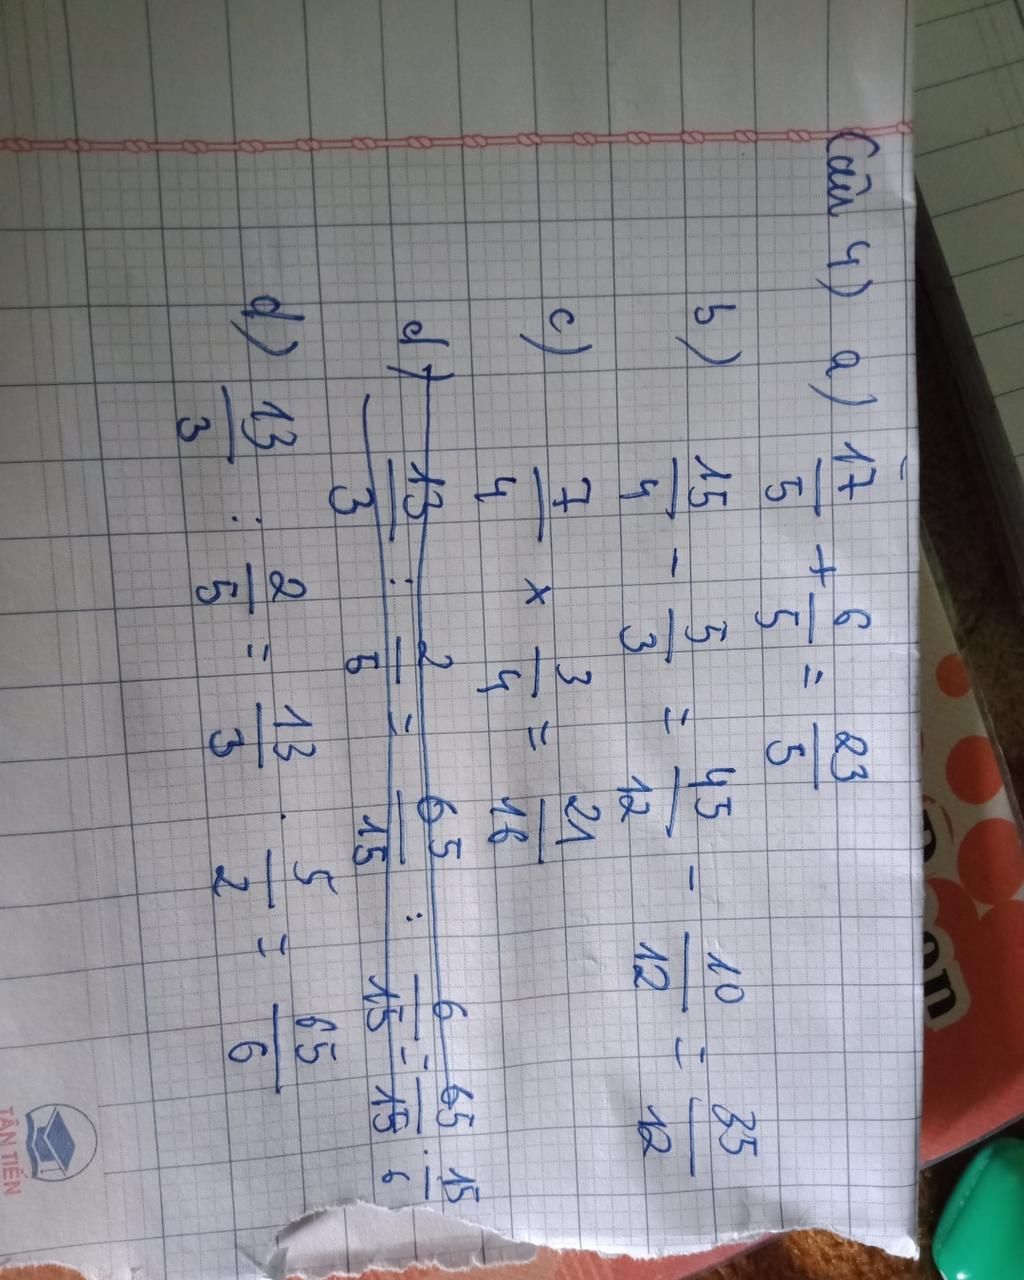 Câu 4) a) 17/5 + 6/5 = 23/5
b) 15/4 - 5/3 = 45/12 - 10/12 = 35/12
c) 7/4 × 3/4 = 21/16
d) 13/3 : 2/5 = 65/15 : 6/15 = 65/15 . 15/6
d) 13/3 : 2/5 = 13/3 . 5/2 = 65/6
TÂN TIẾN